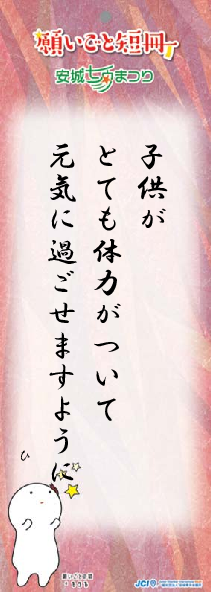 願いごと短冊
安城七夕まつり
子供が
とても体力がついて
元気に過ごせますように
JCI